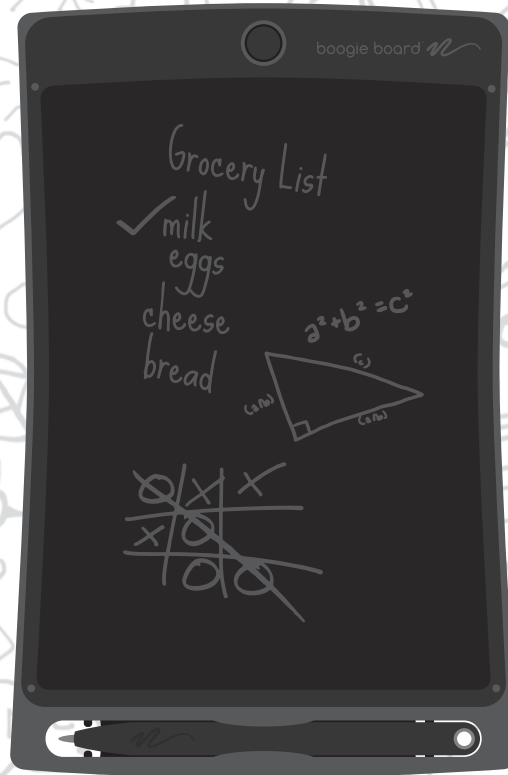 boogie board
Grocery List
✓ milk
eggs
cheese
bread
a²+b²=c²
(c)
(a or b)
(a or b)
O X X
X O
O O